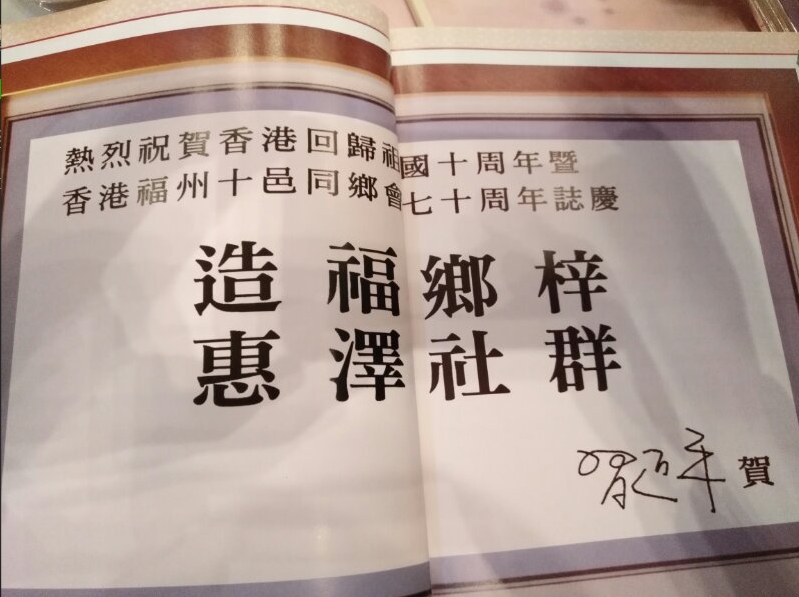 熱烈祝賀香港回歸祖國十周年暨
香港福州十邑同鄉會七十周年誌慶
造福鄉梓
惠澤社群
賀